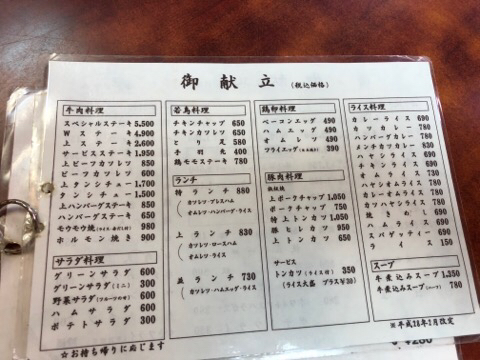 御献立 (税込価格)
牛肉料理
スペシャルステーキ 5,500
Wステーキ 4,900
上ステーキ 2,900
サービスステーキ 1,950
上ビーフカツレツ 850
ビーフカツレツ 600
上タンシチュー 1,700
タンシチュー 1,500
上ハンバーグステーキ 850
ハンバーグステーキ 600
モウモウ焼 950
ホルモン焼き 900
サラダ料理
グリーンサラダ 600
グリーンサラダ(ミニ) 300
野菜サラダ 600
ハムサラダ 600
ポテトサラダ 300
☆お持ち帰りに応じます
若鳥料理
チキンチャップ 650
チキンカツレツ 650
とり足 580
手羽丸 400
鶏モモステーキ 780
ランチ
特ランチ 880
カツレツ・プレスハム
オムレツ・ハンバーグ・ライス
上ランチ 830
カツレツ・ロースハム
オムレツ・ライス
並ランチ 730
カツレツ・ハムエッグ・ライス
鶏卵料理
ベーコンエッグ 490
ハムエッグ 490
オムレツ 490
フライエッグ 390
豚肉料理
上ポークチャップ 1,050
ポークチャップ 750
特上トンカツ 1,050
豚ヒレカツ 950
上トンカツ 650
サービス
トンカツ(ライス付) 350
(ライス大盛 プラス¥30)
ライス料理
カレーライス 690
カツカレー 780
ハンバーグカレー 780
ハヤシライス
チキンライス
オムライス
ハヤシオムライス
カレーオムライス
カツハヤシライス
焼きめし
ハムライス
スパゲッティー
ライス 150
スープ
牛煮込みスープ 1,350
牛煮込みスープ(ハーフ) 780
※平成28年2月改定